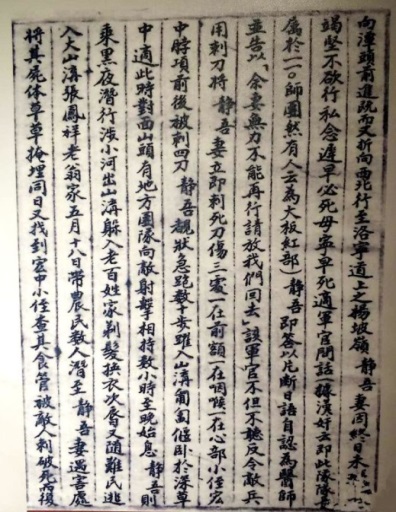 向潭頭前進既而又折向西北行至洛寧道上之楊坡嶺 靜吾 妻因終日未
竭堅不欲行私念遲早必死毋寧早死適軍官問話(據漢奸云即此隊隊
屬於一一〇師團然有人云為大板紅部)靜吾 即答以片斷日語自認為醫師
並告以「余妻無力不能再行請放我們回去」該軍官不但不聽反令敵兵
用刺刀將 靜吾 妻立即刺死刀傷三處一在前額一在咽喉一在心部小侄宏
中脖項前後被刺四刀 靜吾 覩狀急跑數十步躍入山溝匍匐偃卧於深草
中適此時對面山頭有地方團隊向敵射擊相持數小時至晚始息 靜吾則
乘黑夜潛行涉小河出山溝躲入老百姓家剃髮換衣次為又隨難民逃
入大山溝張鳳祥老翁家五月十八日帶農民數人潛至 靜吾 妻遇害處
將其屍体草草掩埋同日又找到宏中小侄查其食管被敵人刺破死而後